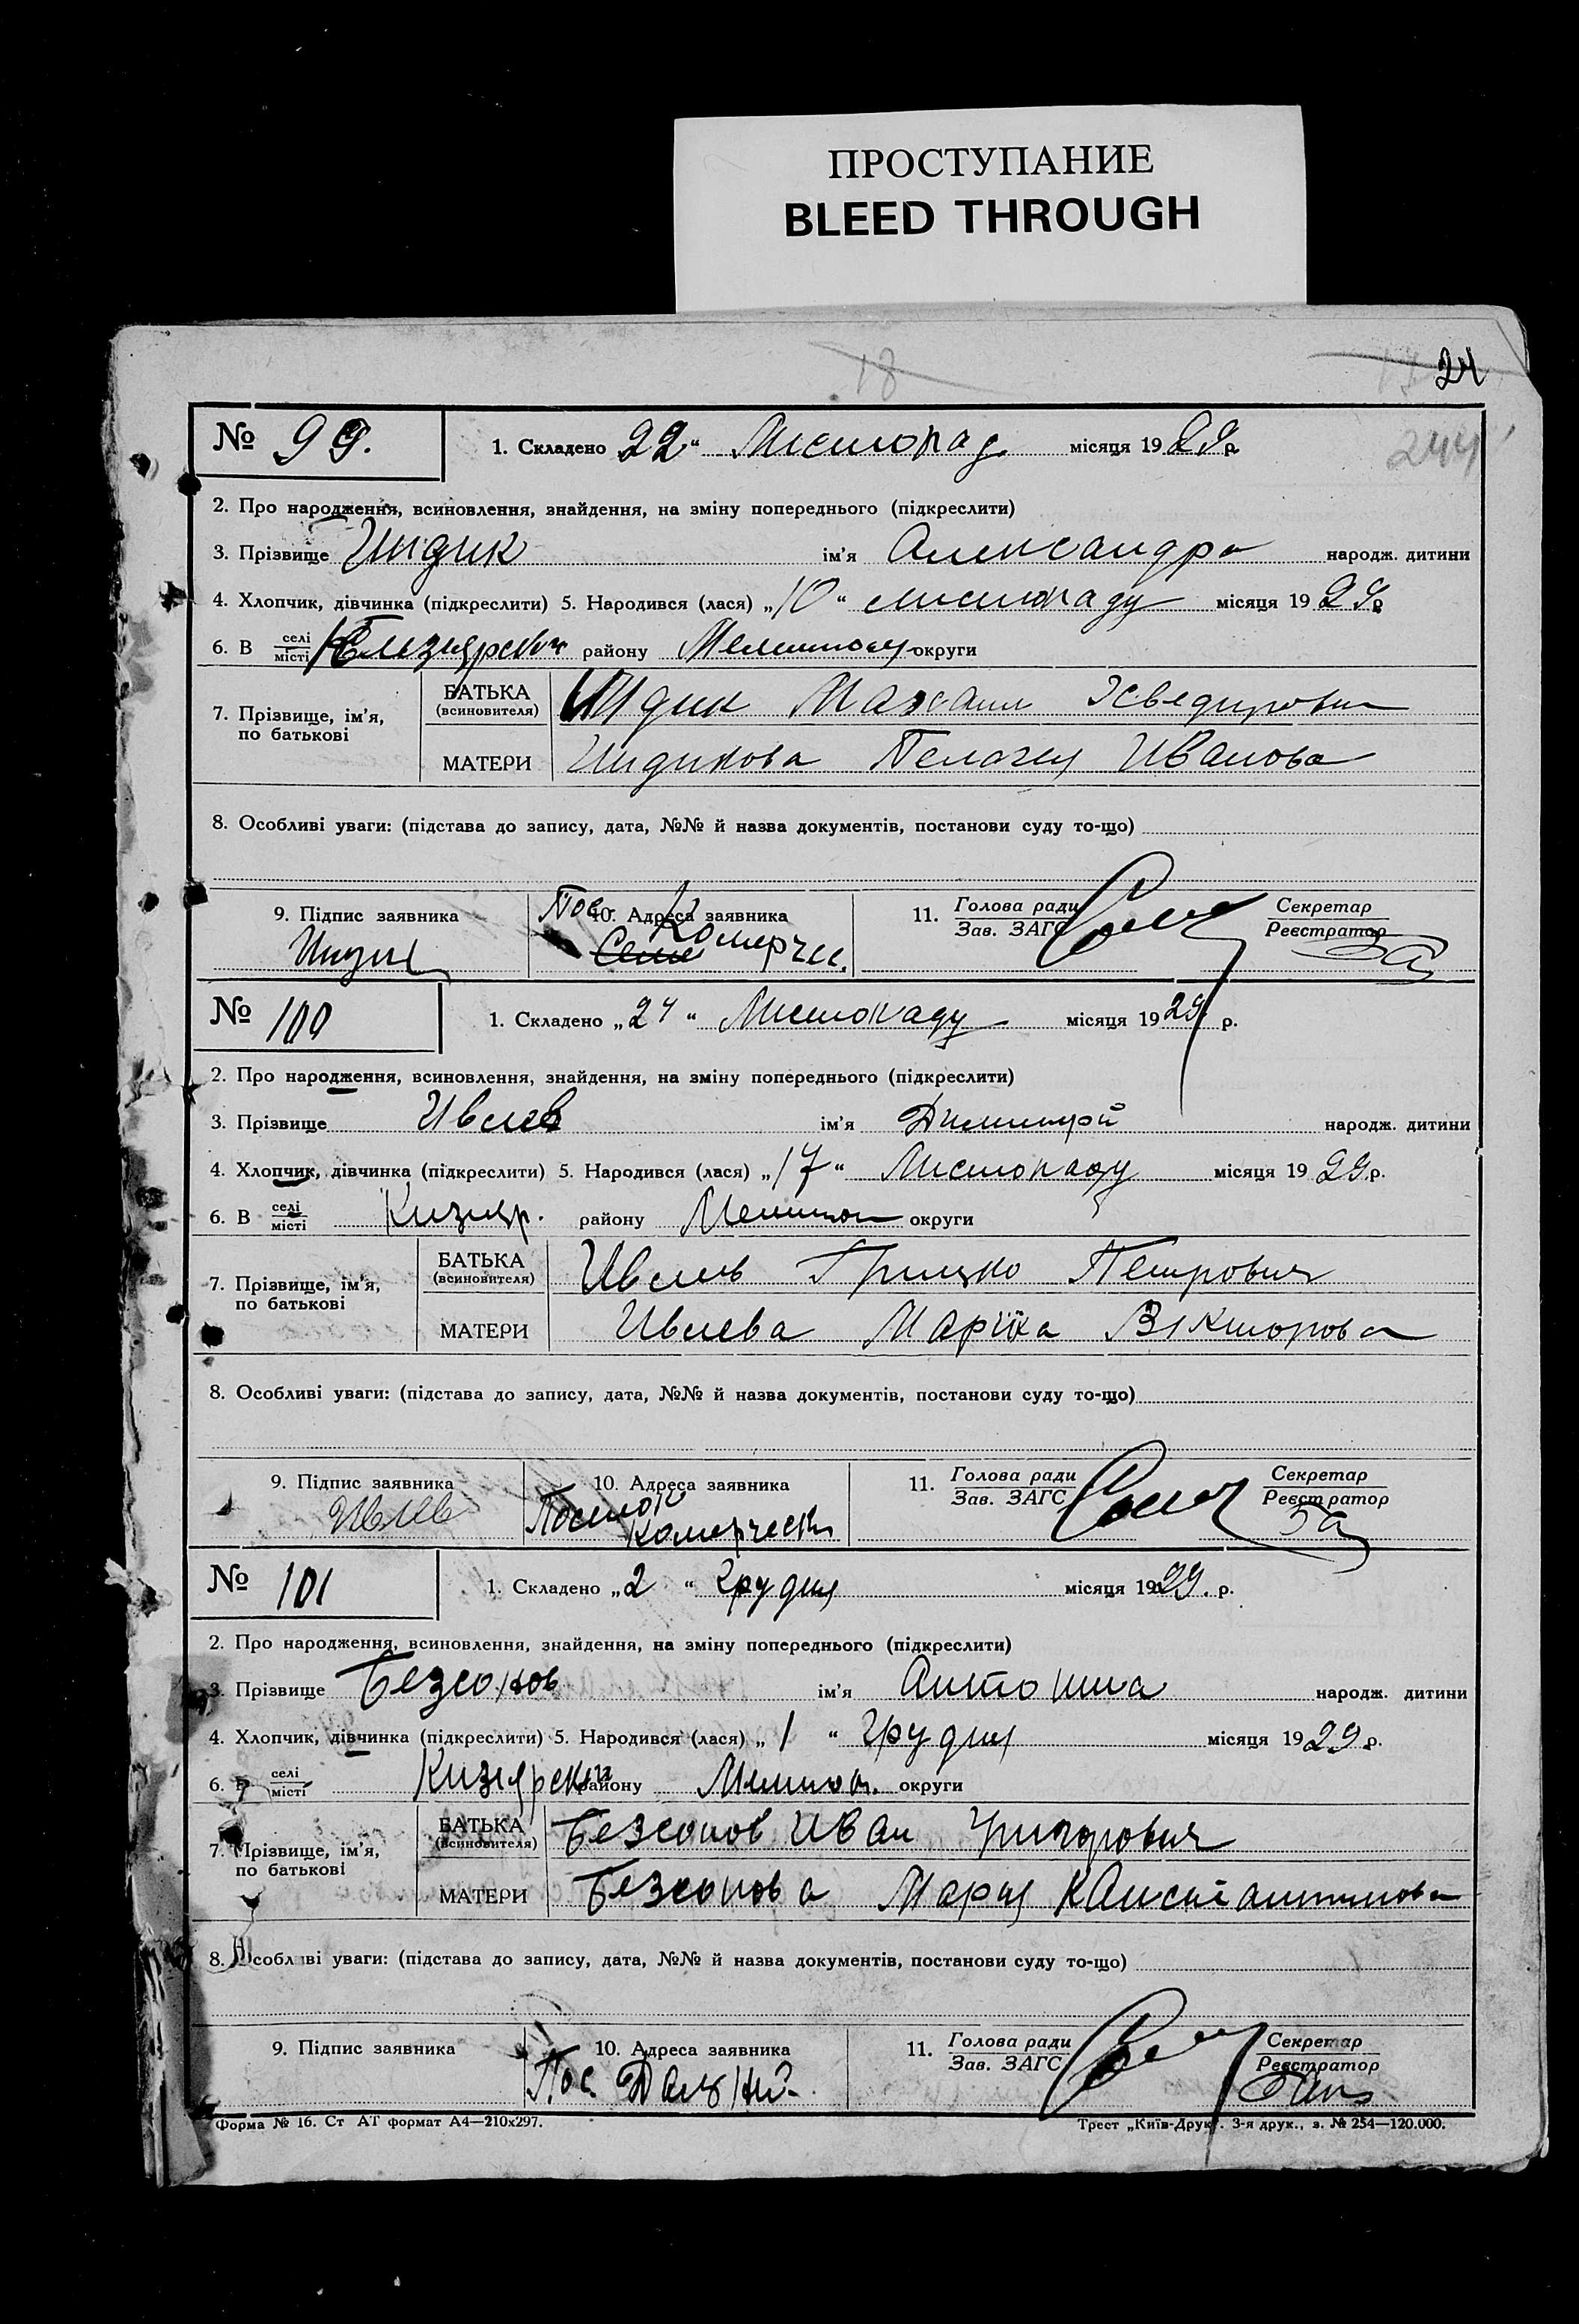 ПРОСТУПАНИЕ
BLEED THROUGH
18
24
244
№ 99. 1. Складено 22 " Листопад місяця 1929 р.
2. Про народження, всиновлення, знайдення, на зміну попереднього (підкреслити)
3. Прізвище Индик ім'я Александра народж. дитини
4. Хлопчик, дівчинка (підкреслити) 5. Народився (лася) „10" листопаду місяця 1929 р
6. В селі/місті району округи
7. Прізвище, ім'я, по батькові
БАТЬКА (всиновителя) Индик
МАТЕРИ Индикова Пелагея Иванова
8. Особливі уваги: (підстава до запису, дата, №№ й назва документів, постанови суду то-що)
9. Підпис заявника 10. Адреса заявника 11. Голова ради Секретар
Зав. ЗАГС Реєстратор
Индик Пос. Комерчес.
№ 100 1. Складено „24" Листопаду місяця 1929 р.
2. Про народження, всиновлення, знайдення, на зміну попереднього (підкреслити)
3. Прізвище Ивлев ім'я Димитрй народж. дитини
4. Хлопчик, дівчинка (підкреслити) 5. Народився (лася) „17" Листопаду місяця 1929 р.
6. В селі/місті Кизияр. району округи
7. Прізвище, ім'я, по батькові
БАТЬКА (всиновителя) Ивлев Грицко Петрович
МАТЕРИ Ивлева Вікторова
8. Особливі уваги: (підстава до запису, дата, №№ й назва документів, постанови суду то-що)
9. Підпис заявника 10. Адреса заявника 11. Голова ради Секретар
Зав. ЗАГС Реєстратор
Ивлев Комерчески
№ 101 1. Складено „2 " грудня місяця 1929. р.
2. Про народження, всиновлення, знайдення, на зміну попереднього (підкреслити)
3. Прізвище Безсонов ім'я Антонина народж. дитини
4. Хлопчик, дівчинка (підкреслити) 5. Народився (лася) „ 1 " грудня місяця 1929 р.
6. В селі/місті району округи
7. Прізвище, ім'я, по батькові
БАТЬКА (всиновителя) Безсонов Иван Григорович
МАТЕРИ Безсонова Мария Канстантинова
8. Особливі уваги: (підстава до запису, дата, №№ й назва документів, постанови суду то-що)
9. Підпис заявника 10. Адреса заявника 11. Голова ради Секретар
Зав. ЗАГС Реєстратор
Пос.
Форма № 16. Ст АТ формат А4—210х297. Трест „Київ-Друк". 3-я друк., з. № 254—120.000.